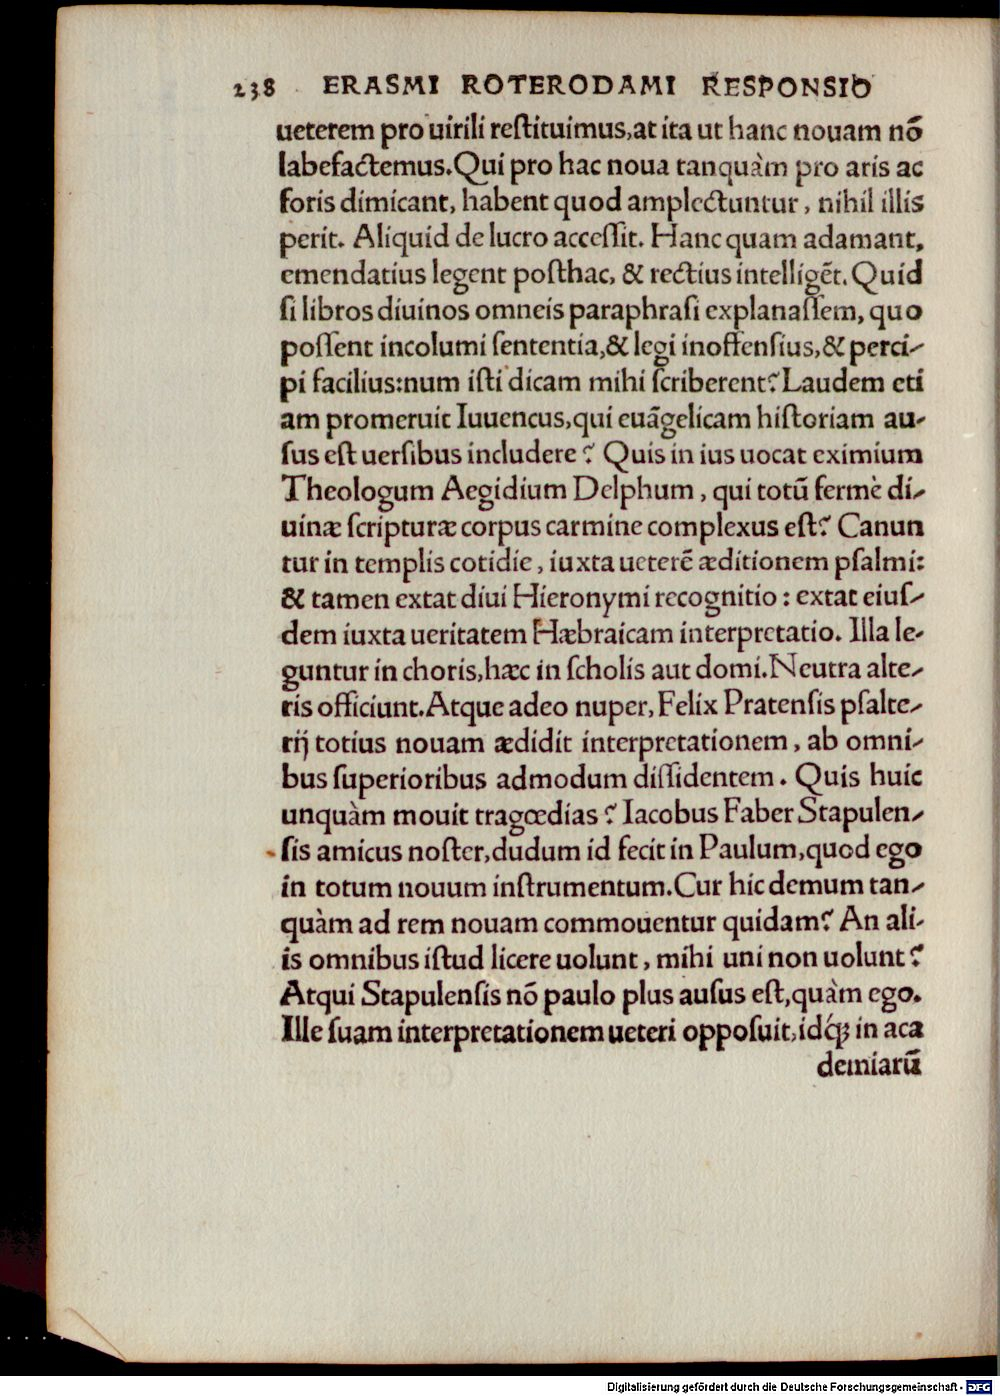 238 ERASMI ROTERODAMI RESPONSIO
ueterem pro uirili reſtituimus,at ita ut hanc nouam nō
labefactemus.Qui pro hac noua tanquàm pro aris ac
foris dimicant, habent quod amplectuntur, nihil illis
perit. Aliquid de lucro acceſſit. Hanc quam adamant,
emendatius legent poſthac, & rectius intelligēt. Quid
ſi libros diuinos omneis paraphraſi explanaſſem, quo
poſſent incolumi ſententia,& legi inoffenſius,& perci-
pi facilius:num iſti dicam mihi ſcriberent? Laudem eti
am promeruit Iuuencus,qui euāgelicam hiſtoriam au-
ſus eſt uerſibus includere? Quis in ius uocat eximium
Theologum Aegidium Delphum, qui totū fermè di-
uinæ ſcripturæ corpus carmine complexus eſt? Canun
tur in templis cotidie, iuxta ueterē æditionem pſalmi:
& tamen extat diui Hieronymi recognitio: extat eiuſ-
dem iuxta ueritatem Hæbraicam interpretatio. Illa le-
guntur in choris,hæc in ſcholis aut domi. Neutra alte-
ris officiunt. Atque adeo nuper, Felix Pratenſis pſalte-
rij totius nouam ædidit interpretationem, ab omni-
bus ſuperioribus admodum diſſidentem. Quis huic
unquàm mouit tragœdias? Iacobus Faber Stapulen-
ſis amicus noſter,dudum id fecit in Paulum,quod ego
in totum nouum inſtrumentum.Cur hic demum tan-
quàm ad rem nouam commouentur quidam? An ali-
is omnibus iſtud licere uolunt, mihi uni non uolunt?
Atqui Stapulenſis nō paulo plus auſus eſt,quàm ego.
Ille ſuam interpretationem ueteri oppoſuit,idq́ꝫ in aca
demiarū
Digitalisierung gefördert durch die Deutsche Forschungsgemeinschaft - DFG